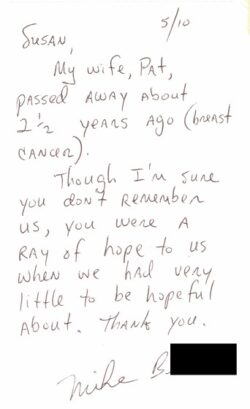 5/10
Susan,
My wife, Pat,
passed away about
2 1/2 years ago (breast
cancer).
Though I'm sure
you don't remember
us, you were a
ray of hope to us
when we had very
little to be hopeful
about. Thank you.
Mike B.